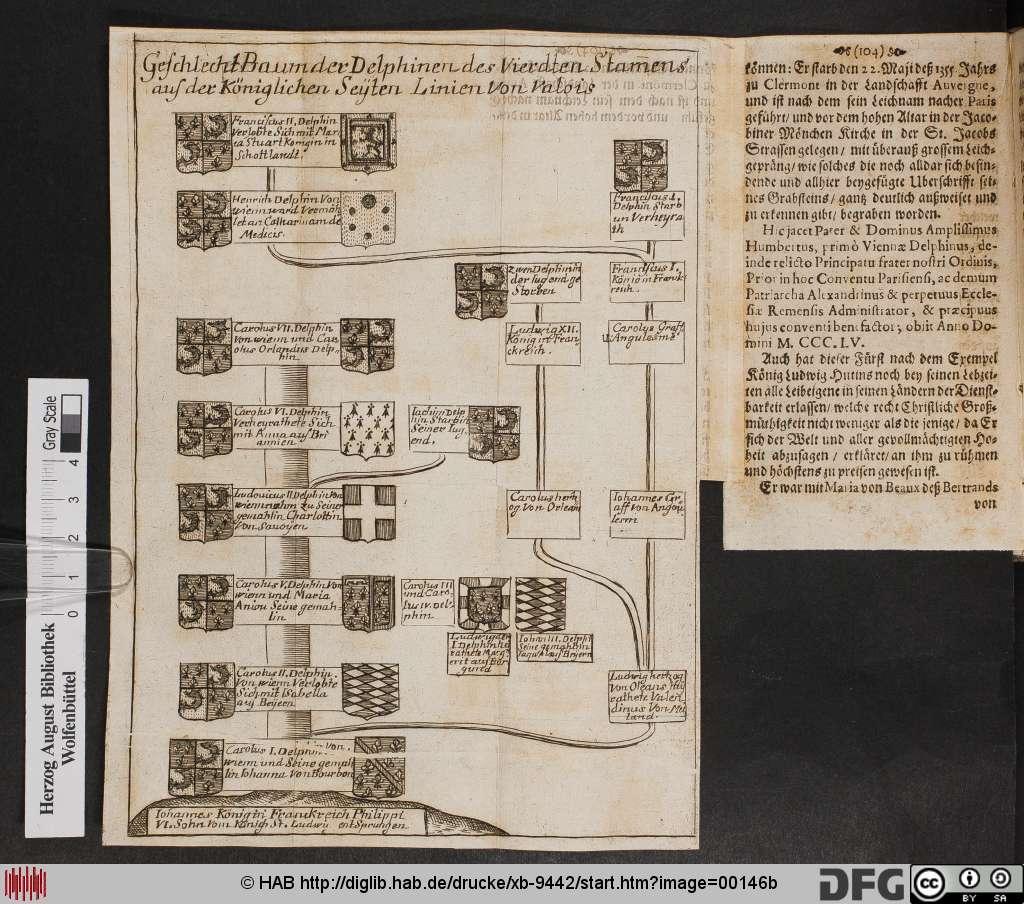 Geschlecht Baum der Delphinen des Vierdten Stamens
auf der Königlichen Seÿten Linien Von Valois
Franciscus II, Delphin
Verlobte Sich mit Mar
ea Stuart Königin in
Schottlandt.
Franciscus I.
Delphin Starb
un Verheyra
th
Henrich Delphin Von
wienn ward Vermäh
let an Catharinam de
Medicis.
zwen Delphinin
der Jugend ge
Storben
Franciscus I.
König in Franck
reich.
Carolus VII. Delphin
Von wienn und Car
olus Orlandus Delp-
hin.
Ludwig XII.
König in Fran
ckreich.
Carolus Graff
V. Angulesme
Carolus VI. Delphin
Verheyrathete Sich
mit Anna auß Bri
annien
Iachim Delp
hin Starb in
Seiner Iug
end.
Ludovicus II Delphin Von
wienn nahm zu Seiner
gemahlin Charlottin
Von Savoyen
Carolus hertz
og Von Orlean
Iohannes Gr
aff von Angou
lesm
Carolus V. Delphin Von
wienn und Maria
Aniou Seine gemah-
lin
Carolus III
und Caro-
lus IV. Del-
phin
Ludwig der
I Delphin he
rathete Marg
erit auß Bur
gund
Iohan III. Delphi
Seine gemahlin
Iaquela auß Beyern
Carolus II. Delphin.
Von wienn Verlobte
Sich mit Isabella
auß Beyeen
Ludwig hertzog
Von Orleans Hei
rathete Valen
dinus Von Mei
land.
Carolus I. Delphin Von.
wienn und Seine gemah
lin Iohanna Von Bourbon
Iohannes König in Franckreich Philippi
VI. Sohn Vom König St. Ludwig entsprungen.
(104)
können: Er starb den 22. Maji deß 1355 Jahrs
zu Clermont in der Landschafft Auvergne,
und ist nach dem sein Leichnam nacher Paris
geführt/ und vor dem hohen Altar in der Jaco-
biner Mönchen Kirche in der St. Jacobs
Strassen gelegen/ mit überauß grossem Leich-
gepräng/ wie solches die noch alldar sich befin-
dende und allhier beygefügte Uberschrifft sei-
nes Grabsteins/ gantz deutlich außweiset und
zu erkennen gibt/ begraben worden.
Hic jacet Pater & Dominus Amplissimus
Humbertus, primò Viennæ Delphinus, de-
inde relicto Principatu frater nostri Ordinis,
Prior in hoc Conventu Parisiensi, ac demum
Patriarcha Alexandrinus & perpetuus Eccle-
siæ Remensis Administrator, & præcipuus
hujus conventi benefactor; obiit Anno Do-
mini M. CCC. LV.
Auch hat dieser Fürst nach dem Exempel
König Ludwig Hutins noch bey seinen Lebzei-
ten alle Leibeigene in seinen Ländern der Dienst-
barkeit erlassen/ welche recht Christliche Groß-
müthigkeit nicht weniger als die jenige/ da Er
sich der Welt und aller gevollmächtigten Ho-
heit abzusagen/ erkläret/ an ihm zu rühmen
und höchstens zu preisen gewesen ist.
Er war mit Maria von Beaux deß Bertrands
von
Gray Scale
0 1 2 3 4
Herzog August Bibliothek
Wolfenbüttel
© HAB http://diglib.hab.de/drucke/xb-9442/start.htm?image=00146b
DFG
cc
BY SA